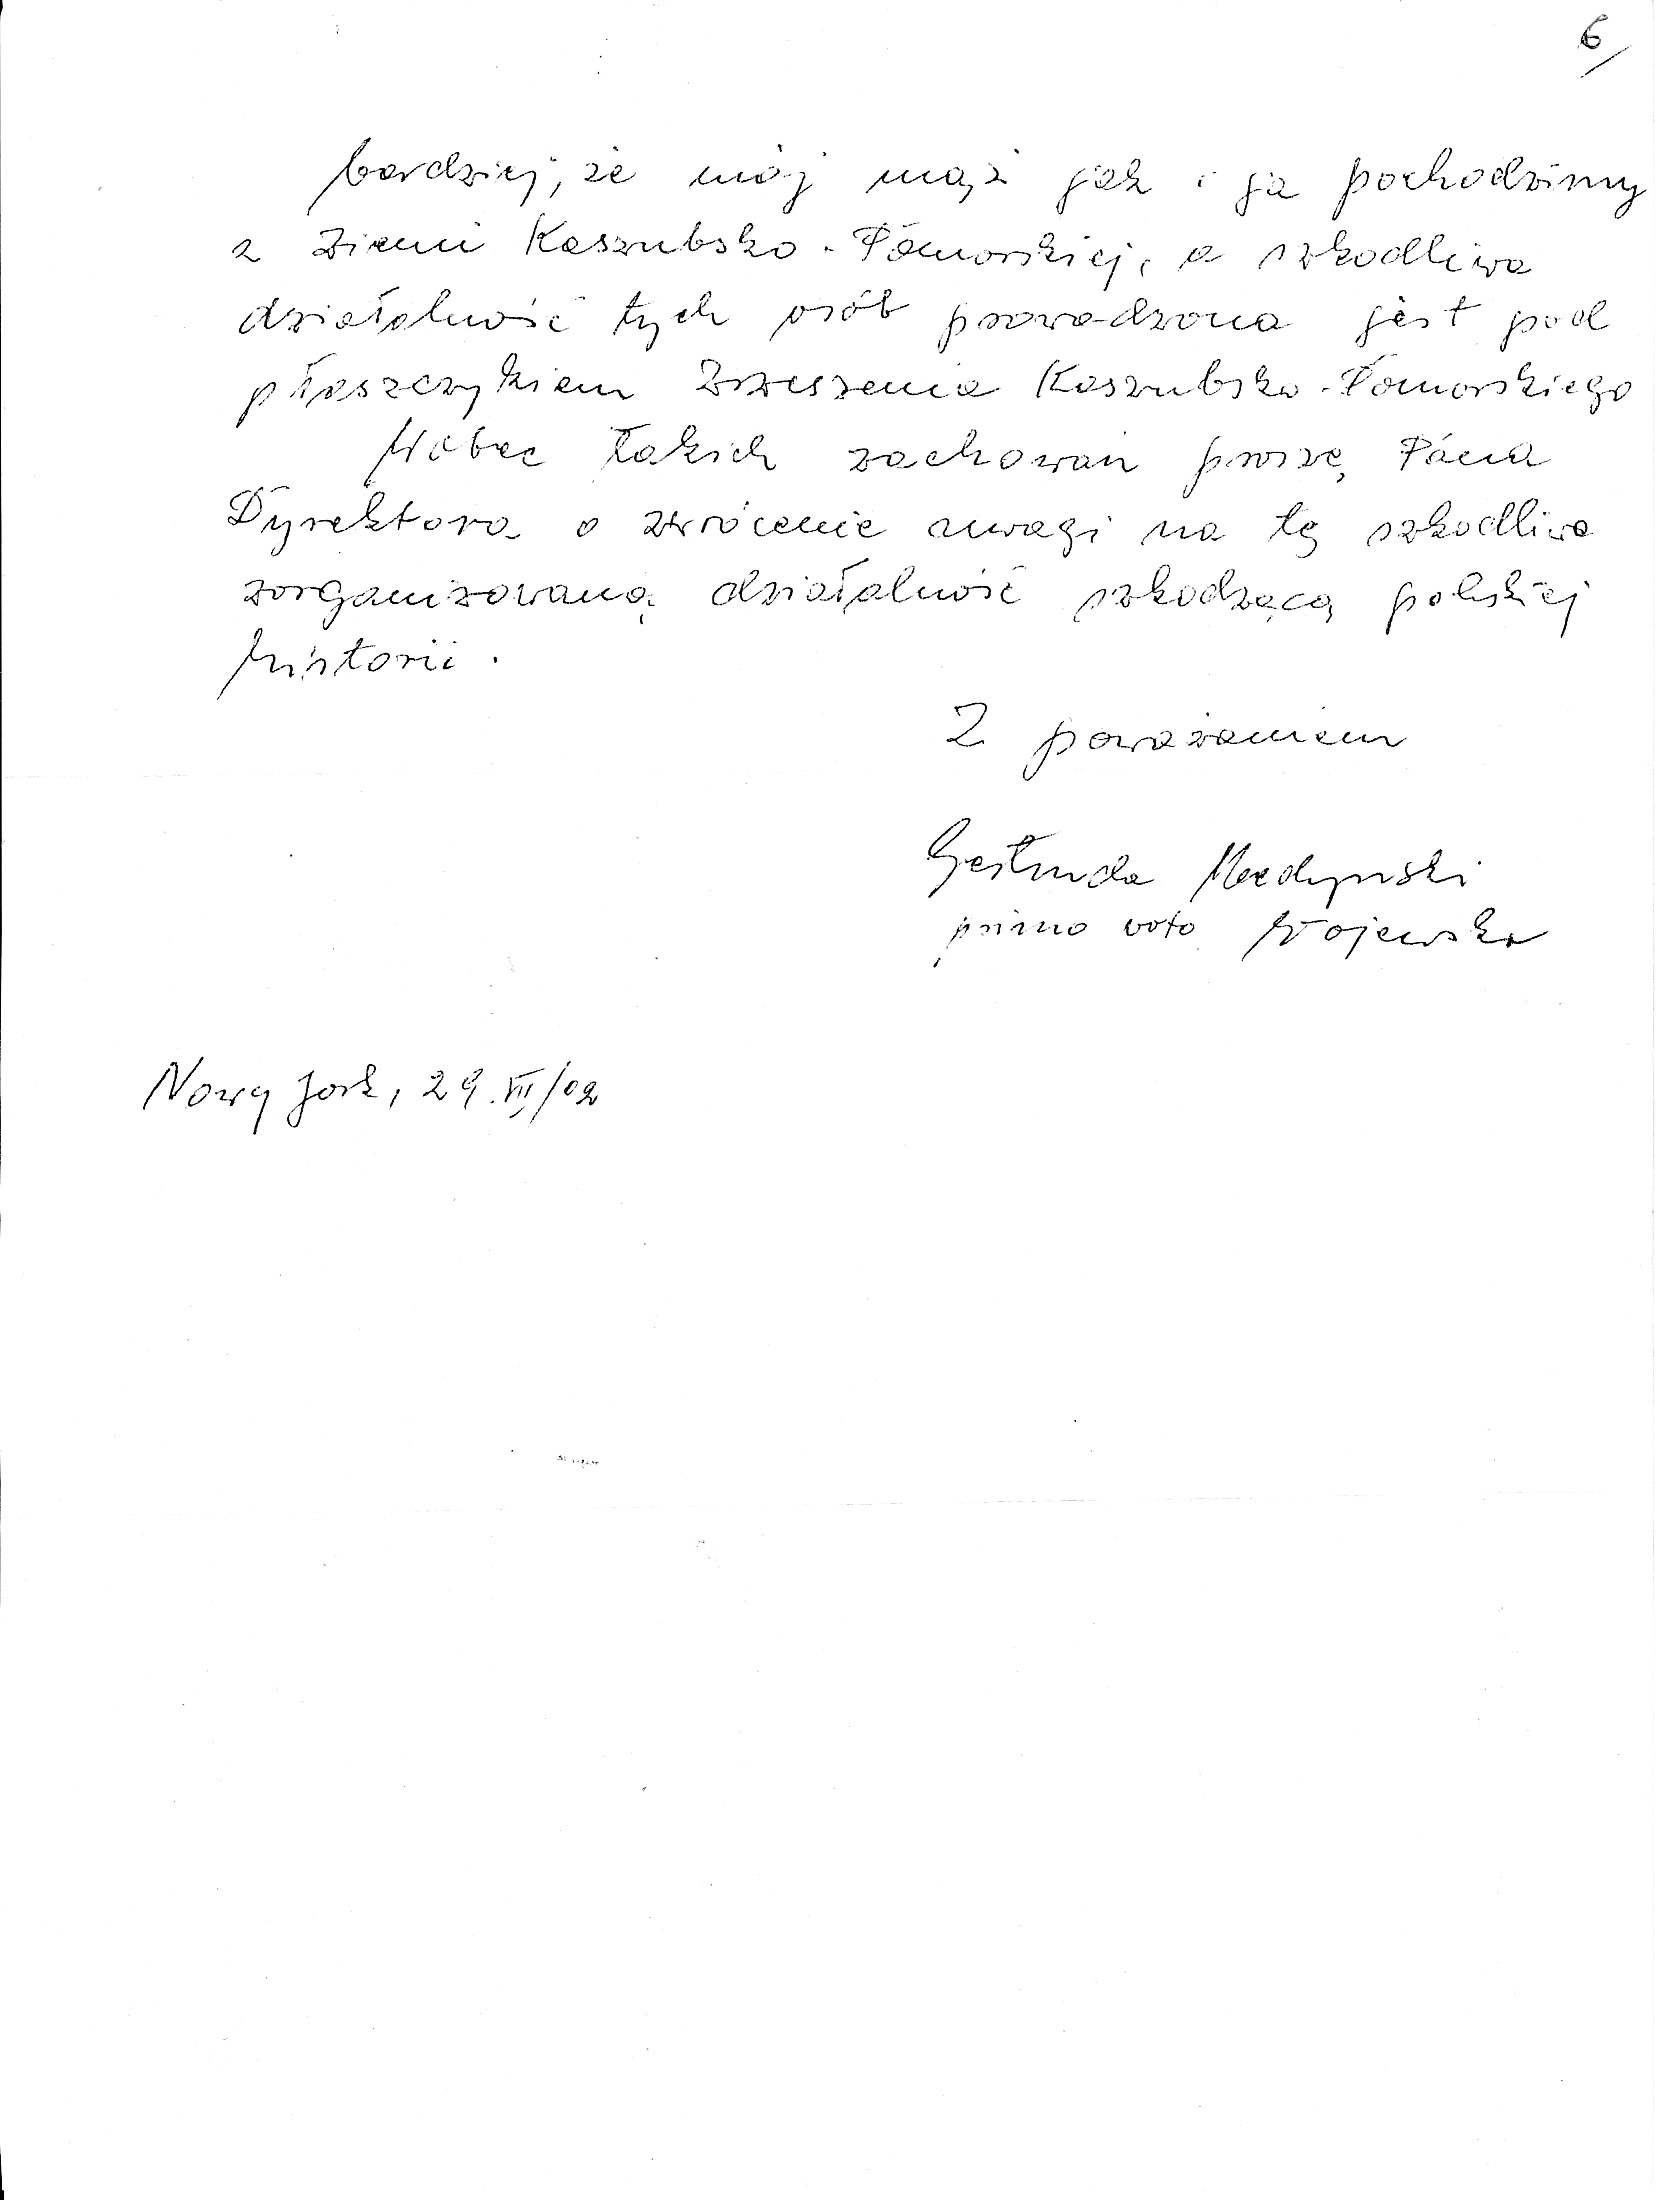 6/
bardziej, że mój mąż jak i ja pochodzimy
z Ziemi Kaszubsko-Pomorskiej, a szkodliwa
działalność tych osób prowadzona jest pod
płaszczykiem Zrzeszenia Kaszubsko-Pomorskiego
Wobec takich zachowań proszę Pana
Dyrektora o zwrócenie uwagi na tę szkodliwą
zorganizowaną działalność szkodzącą polskiej
historii.
Z poważaniem
Gertruda
primo voto Wojewska
Nowy Jork, 29.VII/02